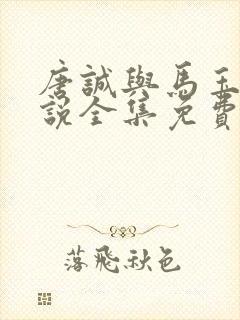 唐誠與馬玉
說全集免費
落飛秋色